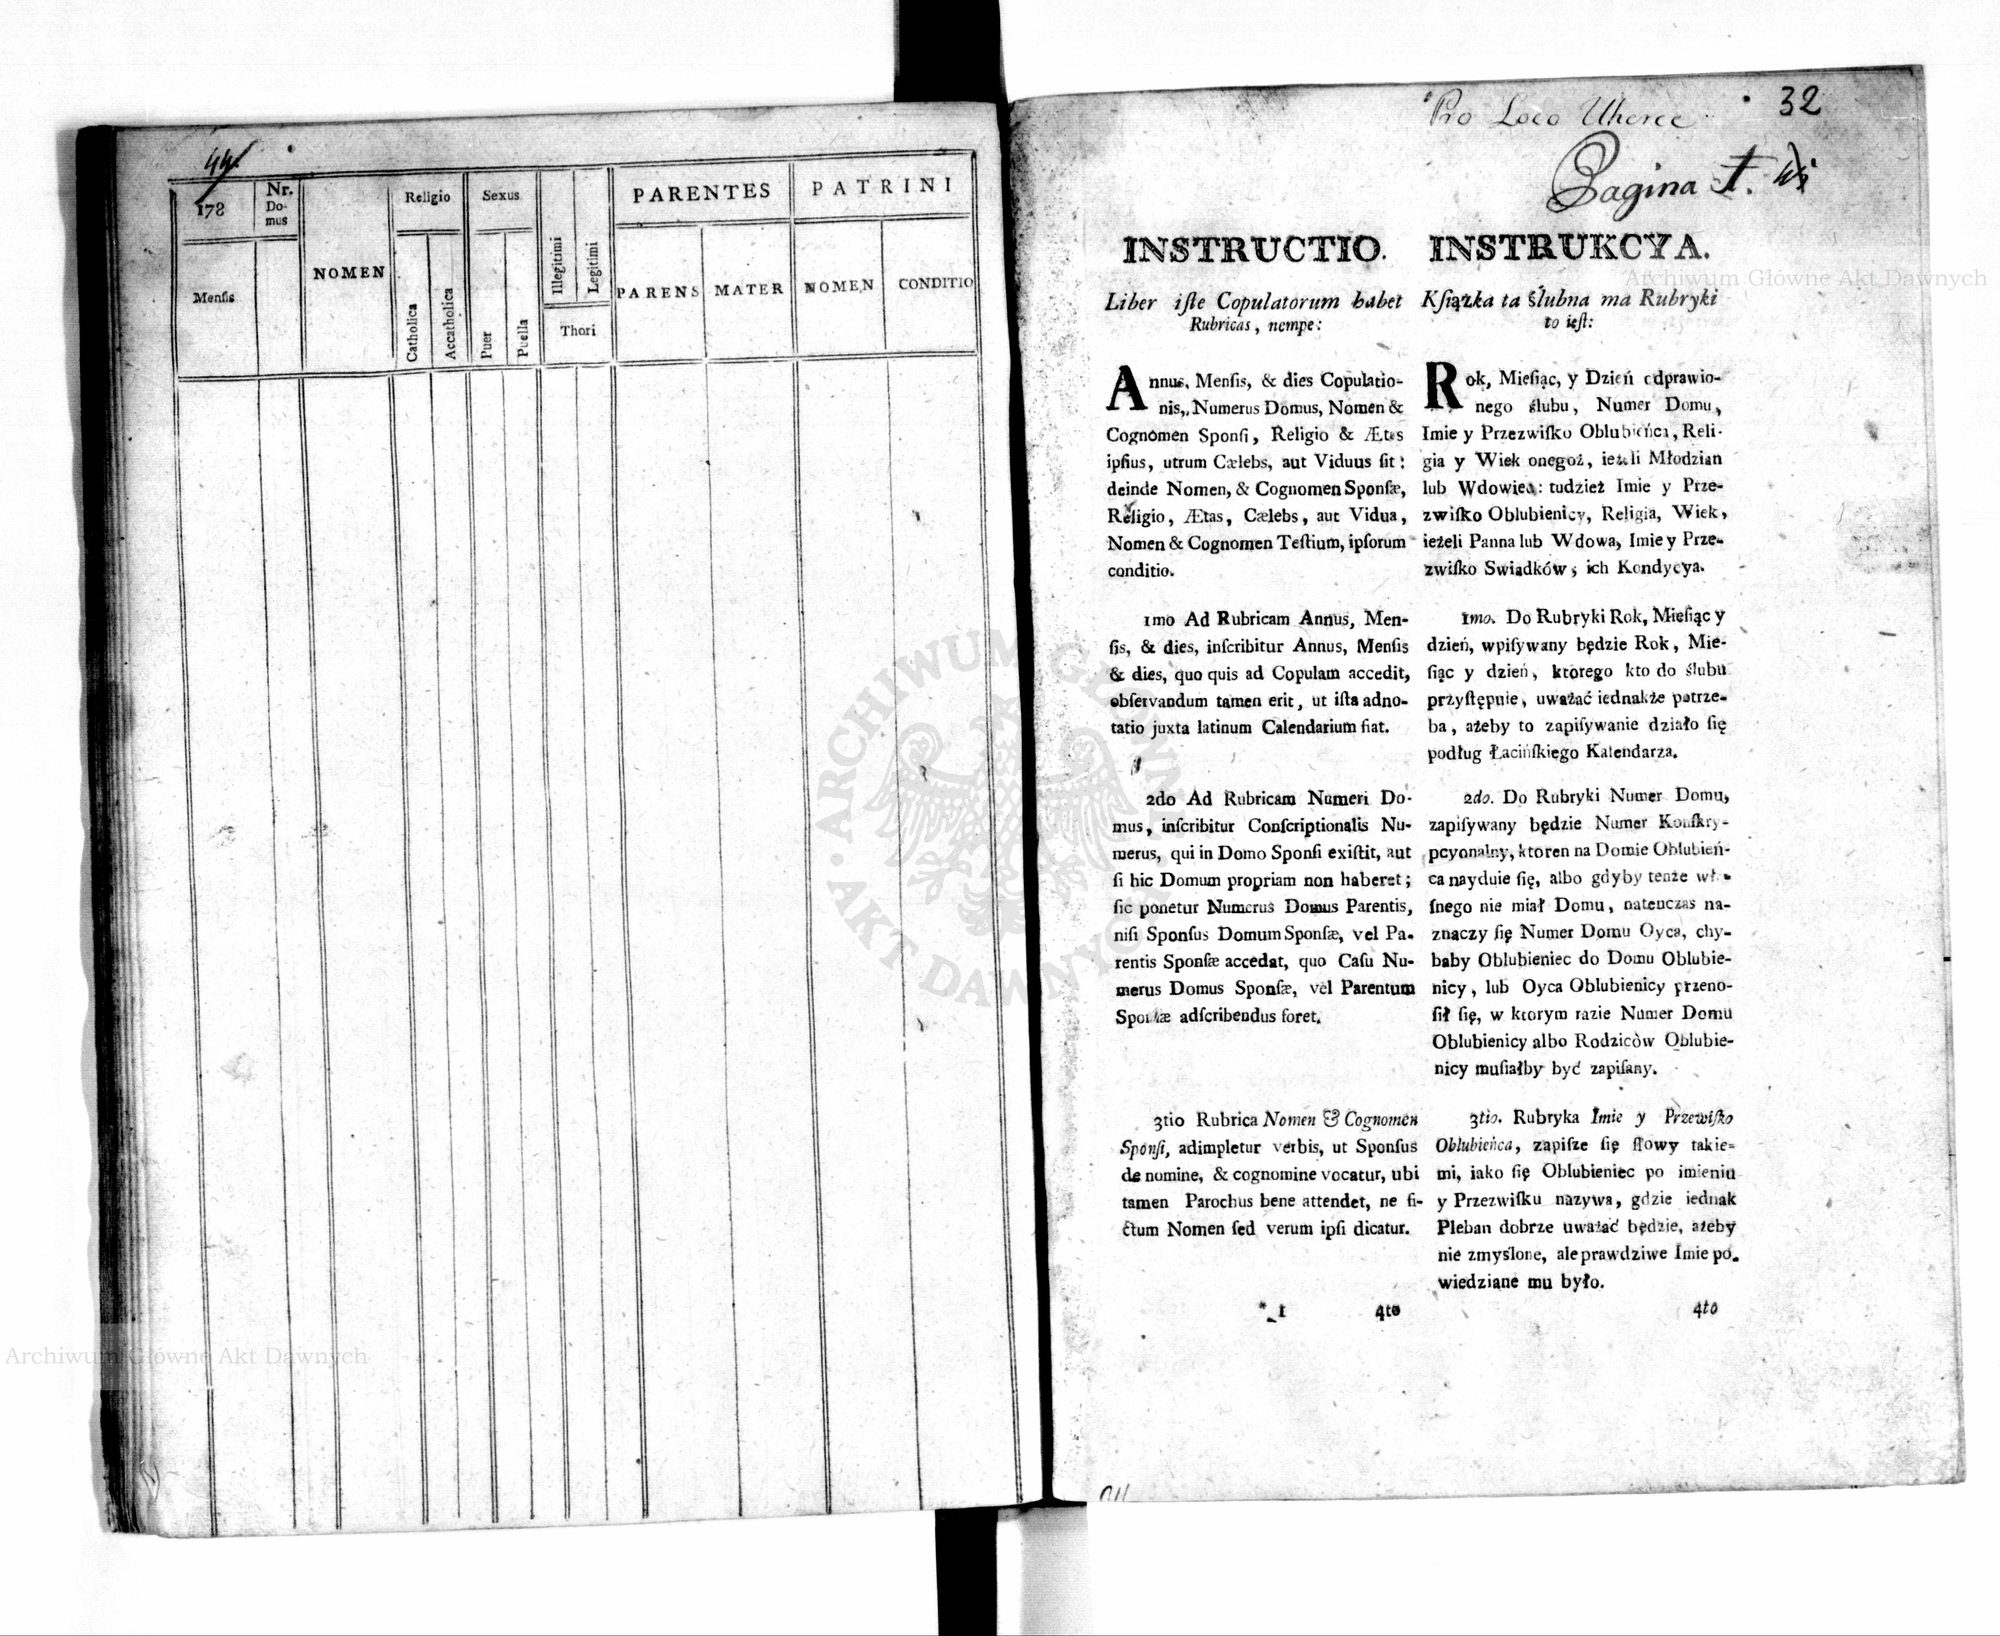 44.
178
Nr.
Do-
mus
Mensis
NOMEN
Religio
Catholica
Accatholica
Sexus
Puer
Puella
Illegitimi
Legitimi
Thori
PARENTES
PARENS
MATER
PATRINI
NOMEN
CONDITIO
Pro Loco Uherce
32
Pagina I.
INSTRUCTIO.
Liber iſte Copulatorum habet
Rubricas, nempe:
Annus, Menſis, & dies Copulatio-
nis, Numerus Domus, Nomen &
Cognomen Sponſi, Religio & Ætas
ipſius, utrum Cælebs, aut Viduus ſit:
deinde Nomen, & Cognomen Sponſæ,
Religio, Ætas, Cælebs, aut Vidua,
Nomen & Cognomen Teſtium, ipſorum
conditio.
1mo Ad Rubricam Annus, Men-
ſis, & dies, inſcribitur Annus, Menſis
& dies, quo quis ad Copulam accedit,
obſervandum tamen erit, ut iſta adno-
tatio juxta latinum Calendarium fiat.
2do Ad Rubricam Numeri Do-
mus, inſcribitur Conſcriptionalis Nu-
merus, qui in Domo Sponſi exiſtit, aut
ſi hic Domum propriam non haberet;
ſic ponetur Numerus Domus Parentis,
niſi Sponſus Domum Sponſæ, vel Pa-
rentis Sponſæ accedat, quo Caſu Nu-
merus Domus Sponſæ, vel Parentum
Sponſæ adſcribendus foret.
3tio Rubrica Nomen & Cognomen
Sponſi, adimpletur verbis, ut Sponſus
de nomine, & cognomine vocatur, ubi
tamen Parochus bene attendet, ne fi-
ctum Nomen ſed verum ipſi dicatur.
* 1 4to
INSTRUKCYA.
Kſiążka ta ślubna ma Rubryki
to ieſt:
Rok, Mieſiąc, y Dzień odprawio-
nego ślubu, Numer Domu,
Imie y Przezwiſko Oblubieńca, Reli-
gia y Wiek onegoż, ieżeli Młodzian
lub Wdowiec: tudzież Imie y Prze-
zwiſko Oblubienicy, Religia, Wiek,
ieżeli Panna lub Wdowa, Imie y Prze-
zwiſko Swiadków; ich Kondycya.
1mo. Do Rubryki Rok, Mieſiąc y
dzień, wpiſywany będzie Rok, Mie-
ſiąc y dzień, ktorego kto do ślubu
przyſtępuie, uważać iednakże potrze-
ba, ażeby to zapiſywanie działo ſię
podług Łacińſkiego Kalendarza.
2do. Do Rubryki Numer Domu,
zapiſywany będzie Numer Konſkry-
pcyonalny, ktoren na Domie Oblubień-
ca nayduie ſię, albo gdyby tenże wła-
ſnego nie miał Domu, natenczas na-
znaczy ſię Numer Domu Oyca, chy-
baby Oblubieniec do Domu Oblubie-
nicy, lub Oyca Oblubienicy przeno-
ſił ſię, w ktorym razie Numer Domu
Oblubienicy albo Rodziców Oblubie-
nicy muſiałby być zapiſany.
3tio. Rubryka Imie y Przewiſko
Oblubieńca, zapiſze ſię ſłowy takie-
mi, iako ſię Oblubieniec po imieniu
y Przezwiſku nazywa, gdzie iednak
Pleban dobrze uważać będzie, ażeby
nie zmyślone, ale prawdziwe Imie po-
wiedziane mu było.
4to
Archiwum Główne Akt Dawnych
Archiwum Główne Akt Dawnych
ARCHIWUM GŁÓWNE
AKT DAWNYCH